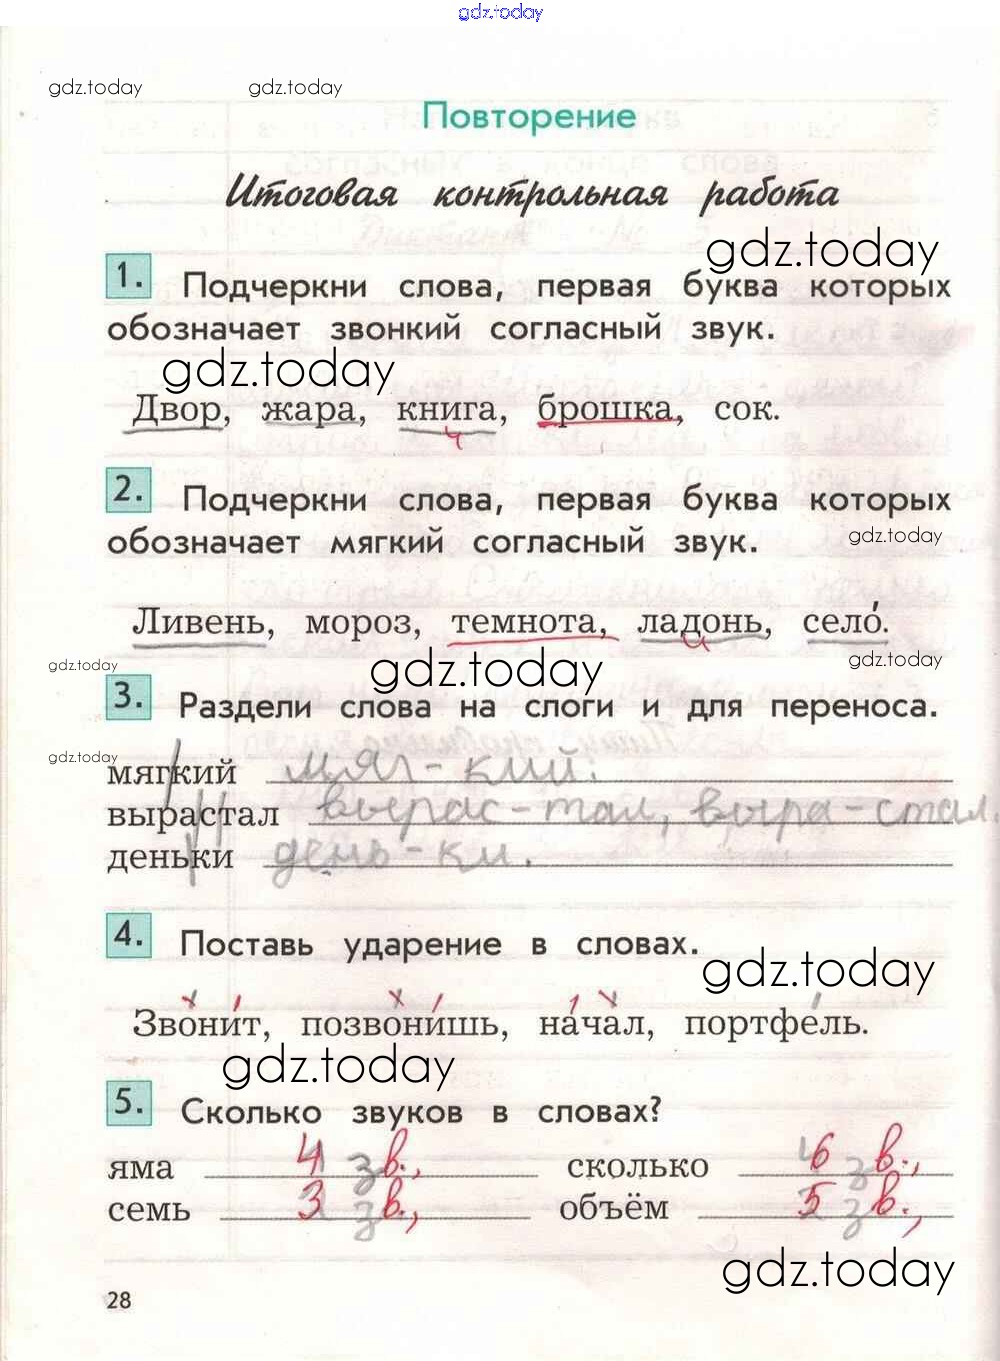 gdz.today
gdz.today gdz.today
Повторение
Итоговая контрольная работа
gdz.today
1. Подчеркни слова, первая буква которых
обозначает звонкий согласный звук.
gdz.today
Двор, жара, книга, брошка, сок.
2. Подчеркни слова, первая буква которых
обозначает мягкий согласный звук.
gdz.today
Ливень, мороз, темнота, ладонь, село́.
gdz.today gdz.today gdz.today
3. Раздели слова на слоги и для переноса.
gdz.today
мягкий мяг-кий.
вырастал вырас-тал, выра-стал.
деньки день-ки.
4. Поставь ударение в словах.
gdz.today
Звони́т, позвони́шь, на́чал, портфе́ль.
gdz.today
5. Сколько звуков в словах?
яма 4 зв., сколько 6 зв.,
семь 3 зв., объём 5 зв.,
gdz.today
28